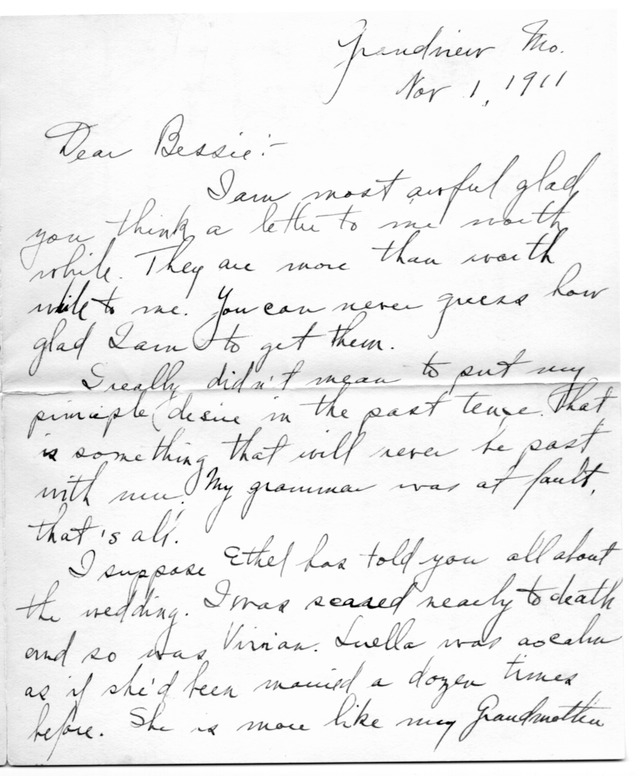 Grandview Mo.
Nov 1, 1911
Dear Bessie:-
I am most awful glad
you think a letter to me worth
while. They are more than worth
while to me. You can never guess how
glad I am to get them.
I really didn't mean to put my
piniciple desire in the past tense. That
is something that will never be past
with me. My grammar was at fault,
that's all.
I suppose Ethel has told you all about
the wedding. I was scared nearly to death
and so was Vivian. Luella was as calm
as if she'd been married a dozen times
before. She is more like my Grandmother